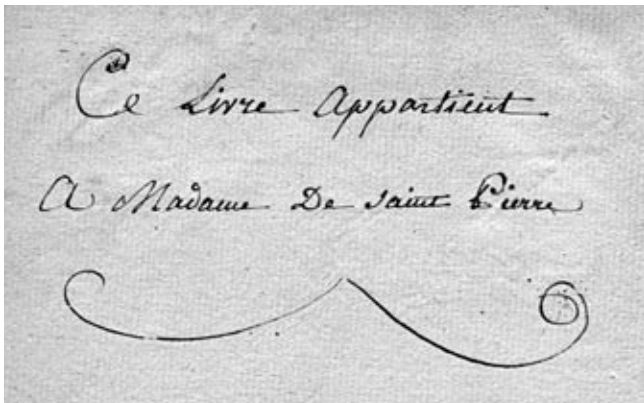 Ce Livre Appartient
A Madame De saint Pierre